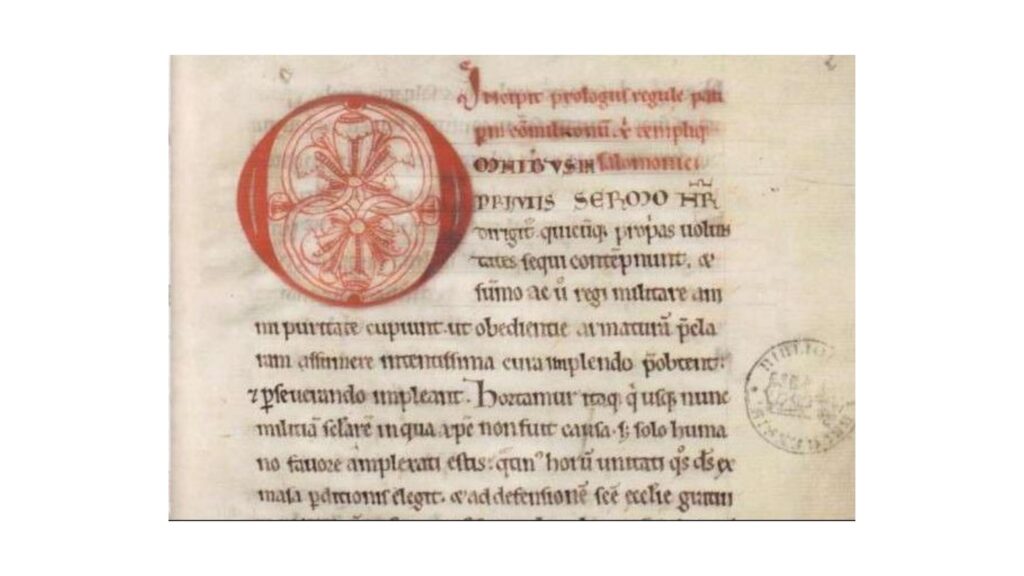 Incipit prologus regule pau
pm c̄militonū. & templiq
OMNIBUS IN Salomonici.
PRIMIS SERMO NR̄
dirigit. quicūq; propias uolun
tates sequi contēpnunt. &
sūmo ac ū regi militare ani
mi puritate cupiunt. ut obedientie armaturā p̄cla
ram assumere intentissima cura implendo p̄obtent.
⁊ ꝑseuerando impleant. Hortamur itaq; q̇ usq; nunc
militiā sclarē in qua xp̄c non fuit causa. s; solo huma
no fauore amplexati estis. q̄tin⁹ horū unitati q̇s ds̄ ex
masa ꝑditionis elegit. & ad defensionē scē ecclie gratui
BIBLIO